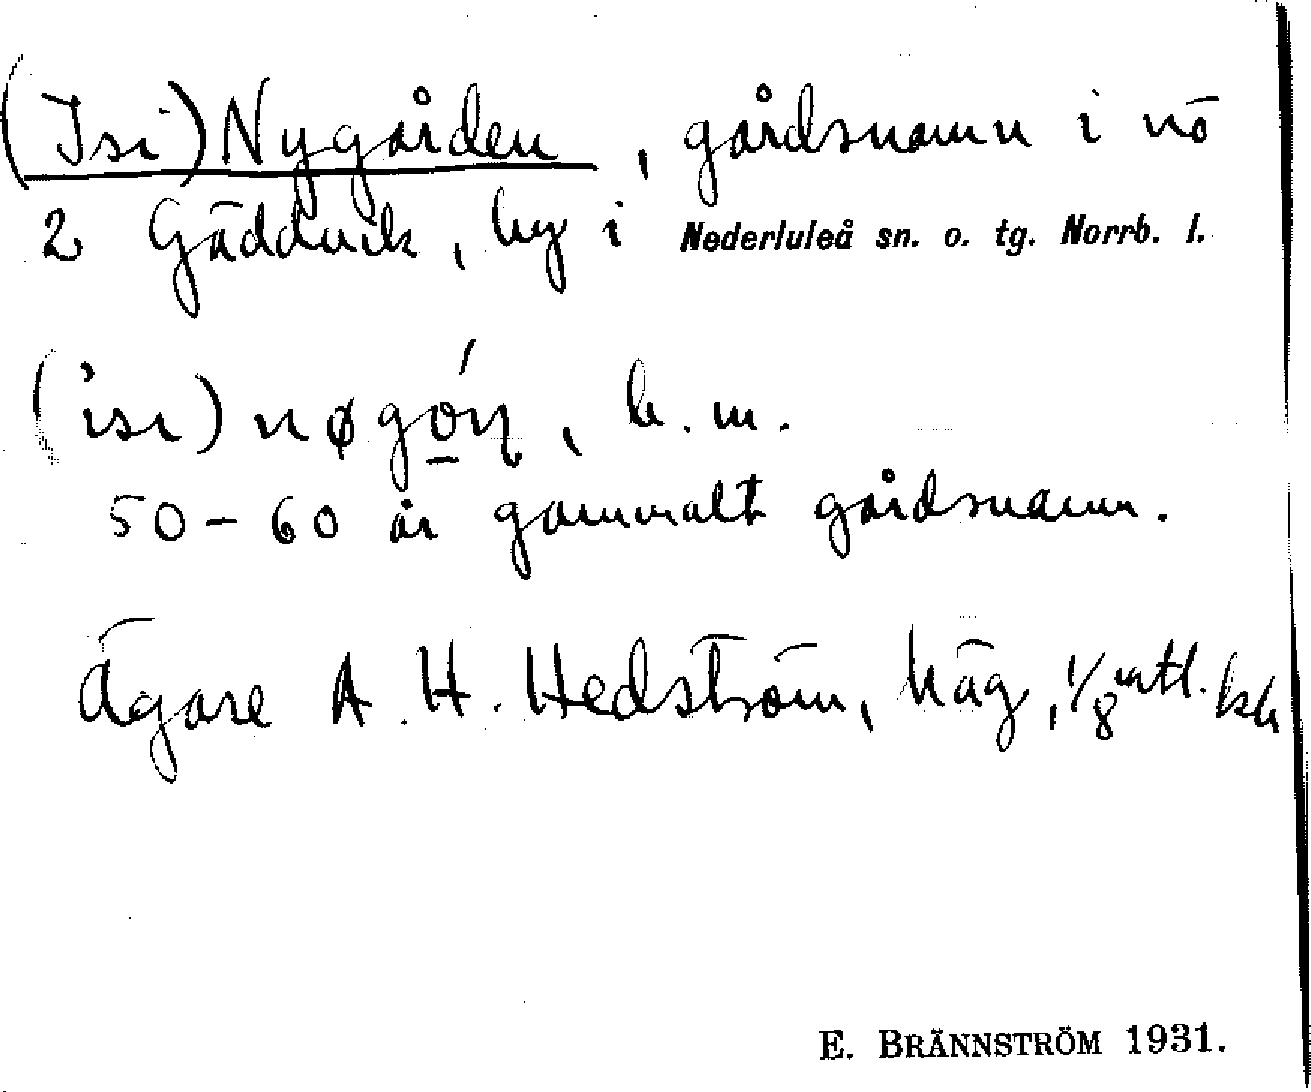 (Isi) Nygården, gårdsnamn i nö
2 Gäddvik, by i Nederluleå sn. o. tg. Norrb. l.
(isi) nøgó̲ɳ, b. m.
50-60 år gammalt gårdsnamn.
Ägare A. H. Hedström, häg, 1/8 mtl. kh
E. BRÄNNSTRÖM 1931.